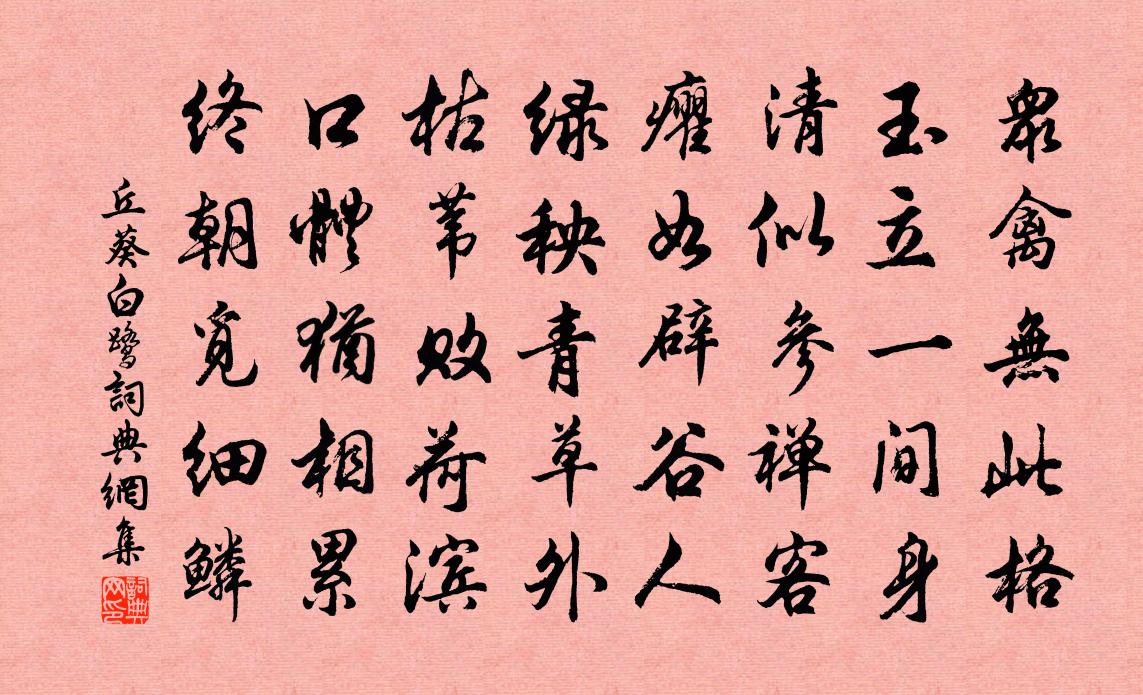 眾禽無此格
玉立一間身
清似參禅客
癯如辟谷人
绿秧青草外
枯苇败荷滨
口體猶相累
终朝覓细鳞
丘葵白鹭詞典網集
詞典网印